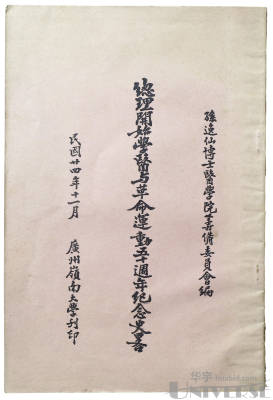 孫逸仙博士醫學院籌備委員會編
總理開始學醫与革命運動五十週年紀念史畧
民國廿四年十一月
廣州嶺南大學刊印
华宇
UNIVERSE